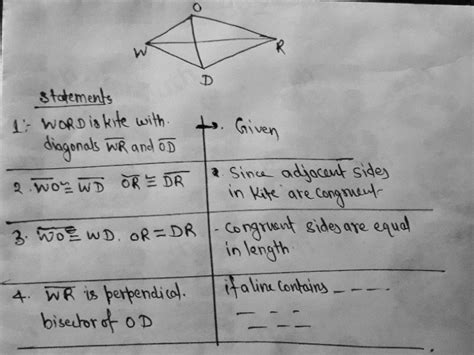 O
W
R
D
Statements
1:- WORD is kite with
diagonals W̅R̅ and O̅D̅
→. Given
2. W̅O̅ ≅ W̅D̅ O̅R̅ ≅ D̅R̅
2. Since adjacent sides
in kite are congruent
3. W̅O̅ ≅ WD. OR = D̅R̅
- Congruent sides are equal
in length.
4. W̅R̅ is perpendical.
bisector of OD
if a line contains _ _ _ _
_ _ _ _